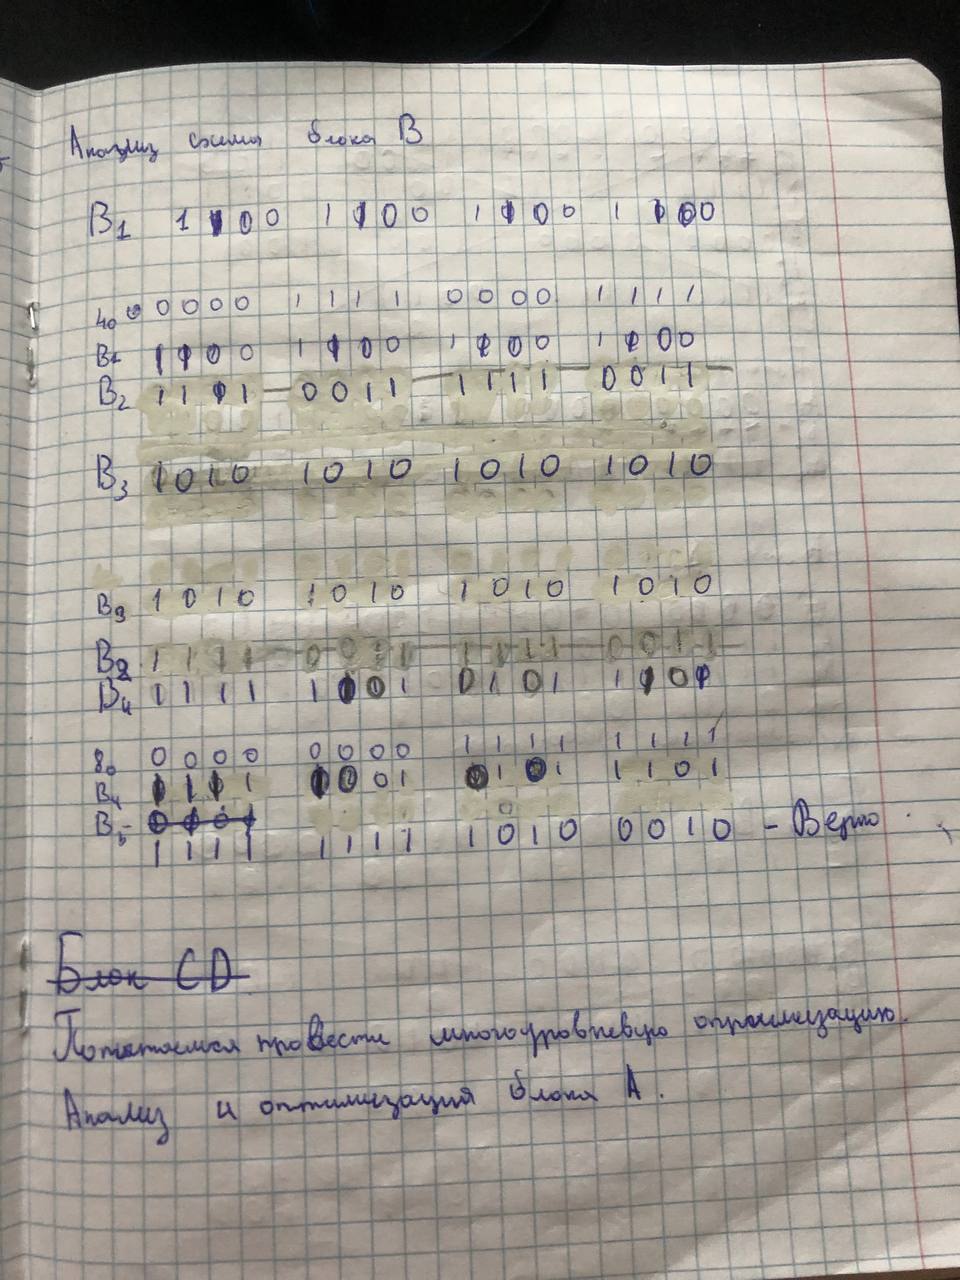 Анализ схемы блока В
B1 1100 1100 1100 1100
40 0000 1111 0000 1111
B1 1100 1100 1100 1100
B2 1101 0011 1111 0011
B3 1010 1010 1010 1010
B3 1010 1010 1010 1010
B2 1111 0011 1111 0011
B4 0111 1001 0101 1101
80 0000 0000 1111 1111
B4 1101 0101
B5
1111 1111 1010 0010 - Верно
Блок CD
Попытаемся провести многоуровневую оптимизацию.
Анализ и оптимизация блока А.